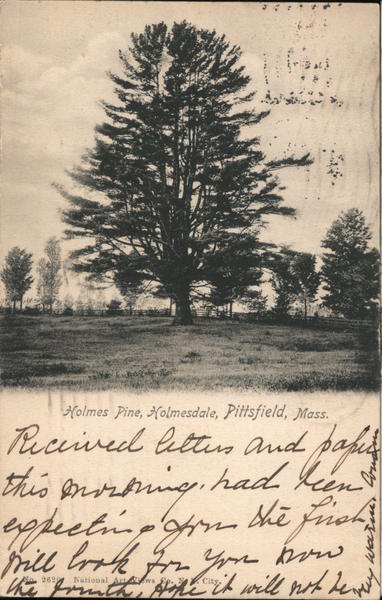 Holmes Pine, Holmesdale, Pittsfield, Mass.
Received letters and paper
this morning. had been
expecting you the first
Will look for you now
No. 2620 National Art Views Co. N. Y. City.
the fourth, hope it will not be
very warm.